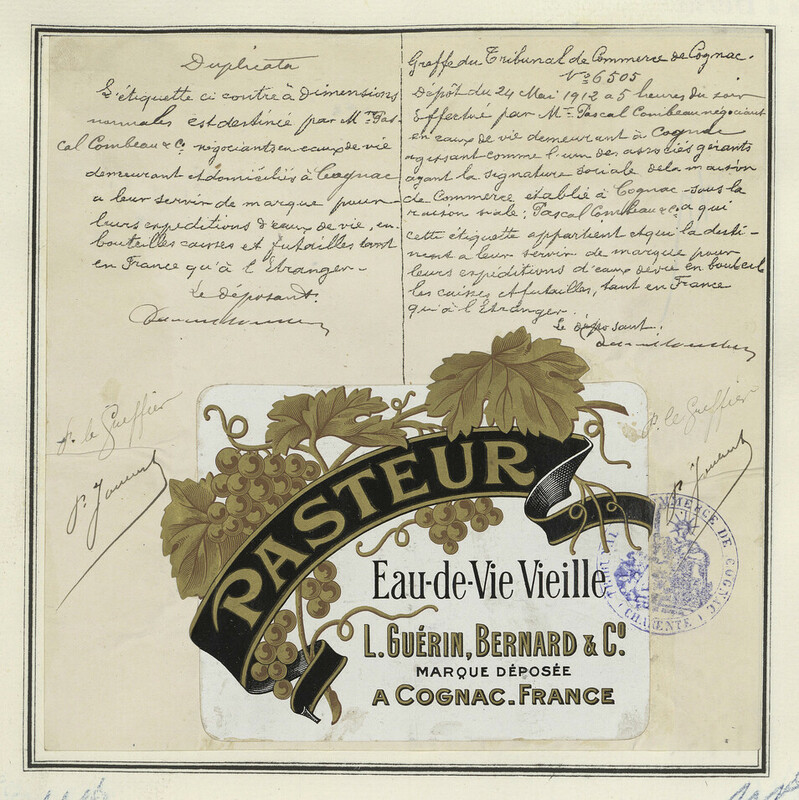 Duplicata
L'étiquette ci contre à dimensions
normales est destinée par Mr. Pas-
cal Combeau & Co. négociants en eaux de vie
demeurant et domiciliés à Cognac
a leur servir de marque pour
leurs expéditions d'eaux de vie, en
bouteilles caisses et futailles tant
en France qu'à l'Etranger.
Le déposant.
P. le Greffier
Greffe du Tribunal de Commerce de Cognac.
No 6505
Dépôt du 24 Mai 1912 a 5 heures du soir
effectué par Mr. Pascal Combeau négociant
en eaux de vie demeurant à Cognac
agissant comme l'un des associés gérants
ayant la signature sociale de la maison
de Commerce établie à Cognac sous la
raison sociale; Pascal Combeau & Co. a qui
cette étiquette appartient et qui la desti-
nent a leur servir de marque pour
leurs expéditions d'eaux de vie en bouteil
les caisses et futailles, tant en France
qu'à l'Etranger.
Le déposant.
P. le Greffier
PASTEUR
Eau-de-Vie Vieille
L. GUÉRIN, BERNARD & Co.
MARQUE DÉPOSÉE
A COGNAC. FRANCE
TRIBUNAL COMMERCE DE COGNAC
CHARENTE